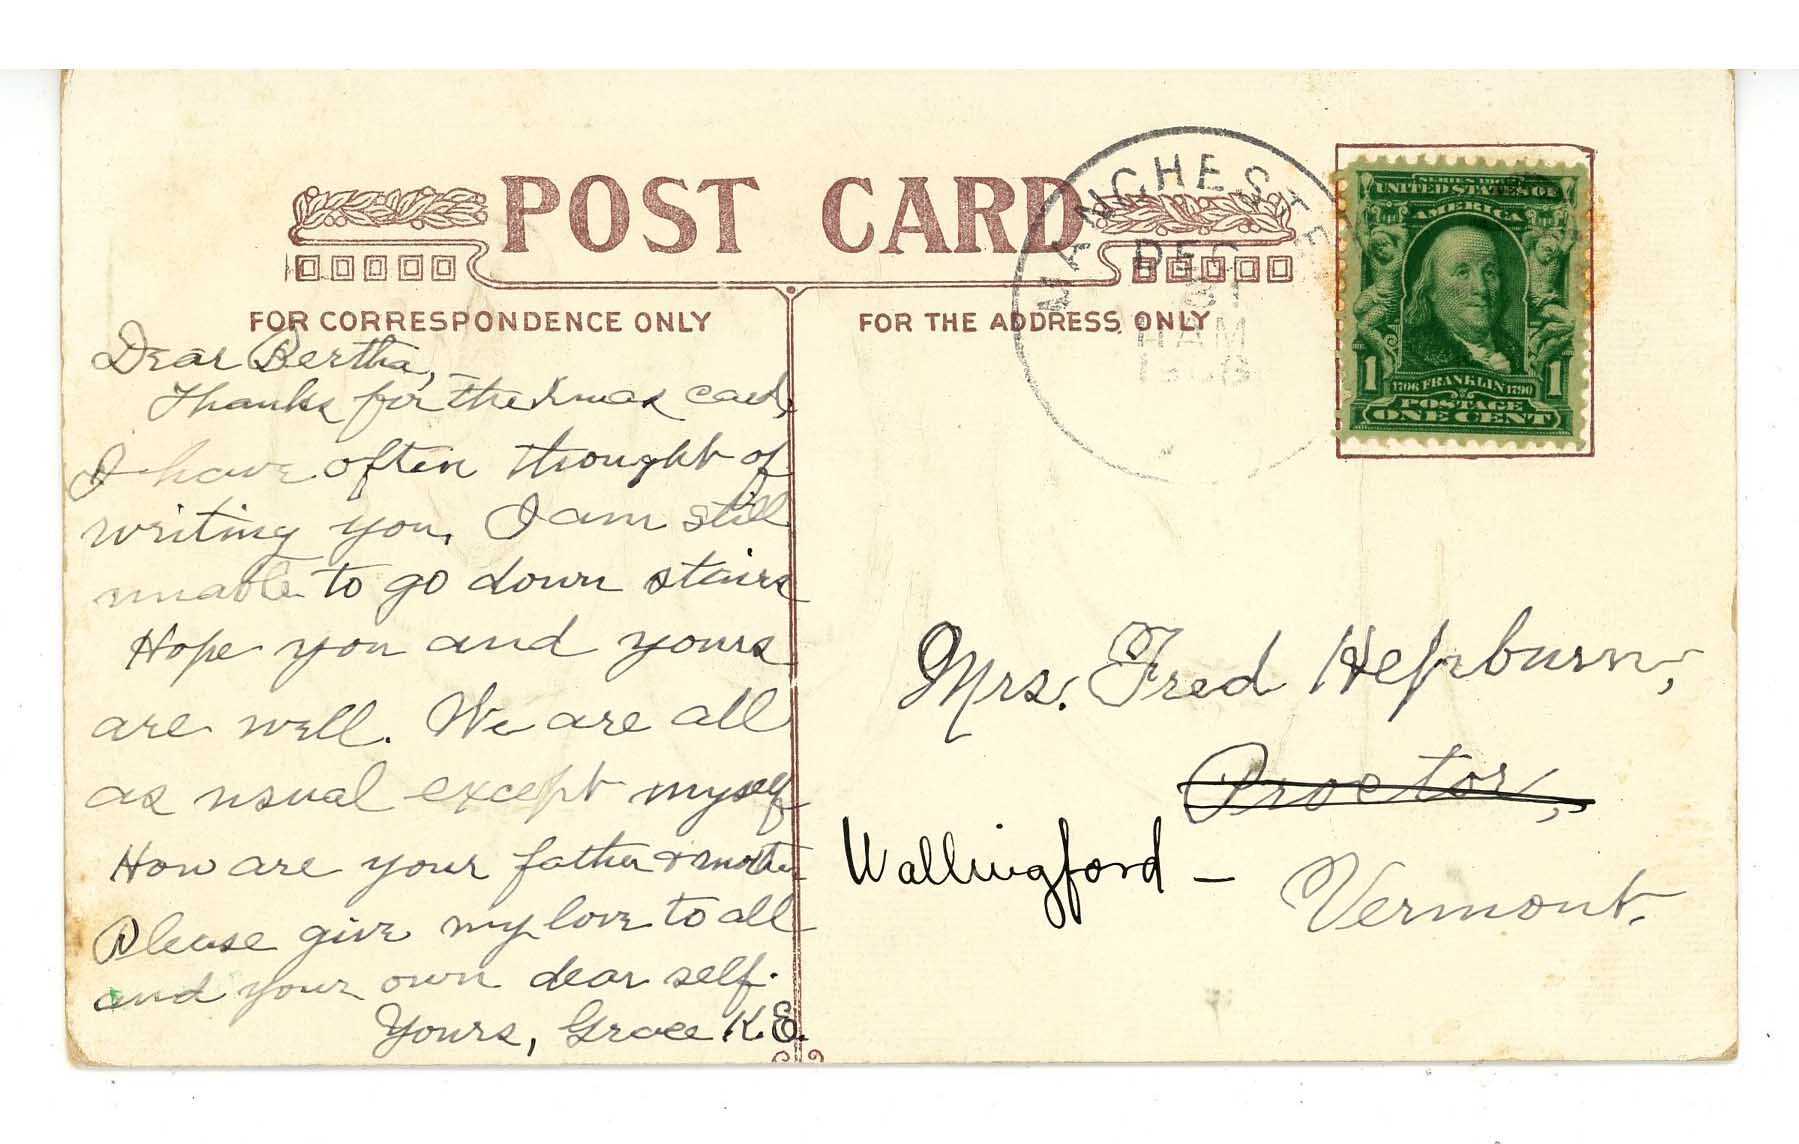 POST CARD
FOR CORRESPONDENCE ONLY
FOR THE ADDRESS ONLY
MANCHESTE
DEC
31
11 AM
1908
SERIES 1902
UNITED STATES OF
AMERICA
1706 FRANKLIN 1790
1 1
POSTAGE
ONE CENT
Dear Bertha,
Thanks for the Xmas card,
I have often thought of
writing you, I am still
unable to go down stairs
Hope you and yours
are well. We are all
as usual except myself
How are your father & mother
Please give my love to all
and your own dear self.
Yours, Grace K. E.
Mrs. Fred Hepburn,
Proctor,
Wallingford —
Vermont.